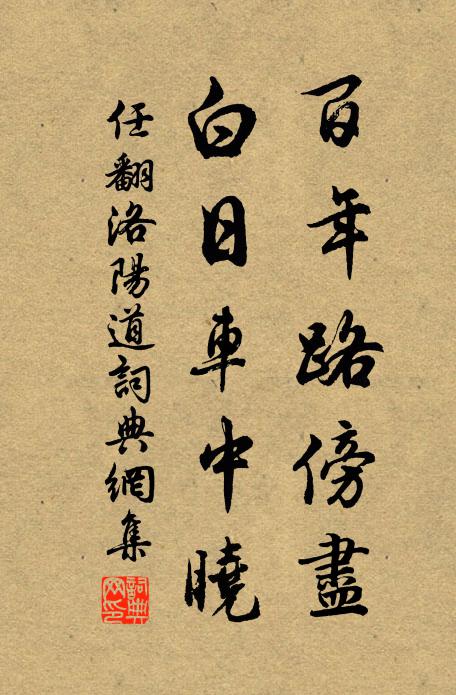 百年路傍盡
白日車中曉
任翻洛陽道詞典網集
詞典网印